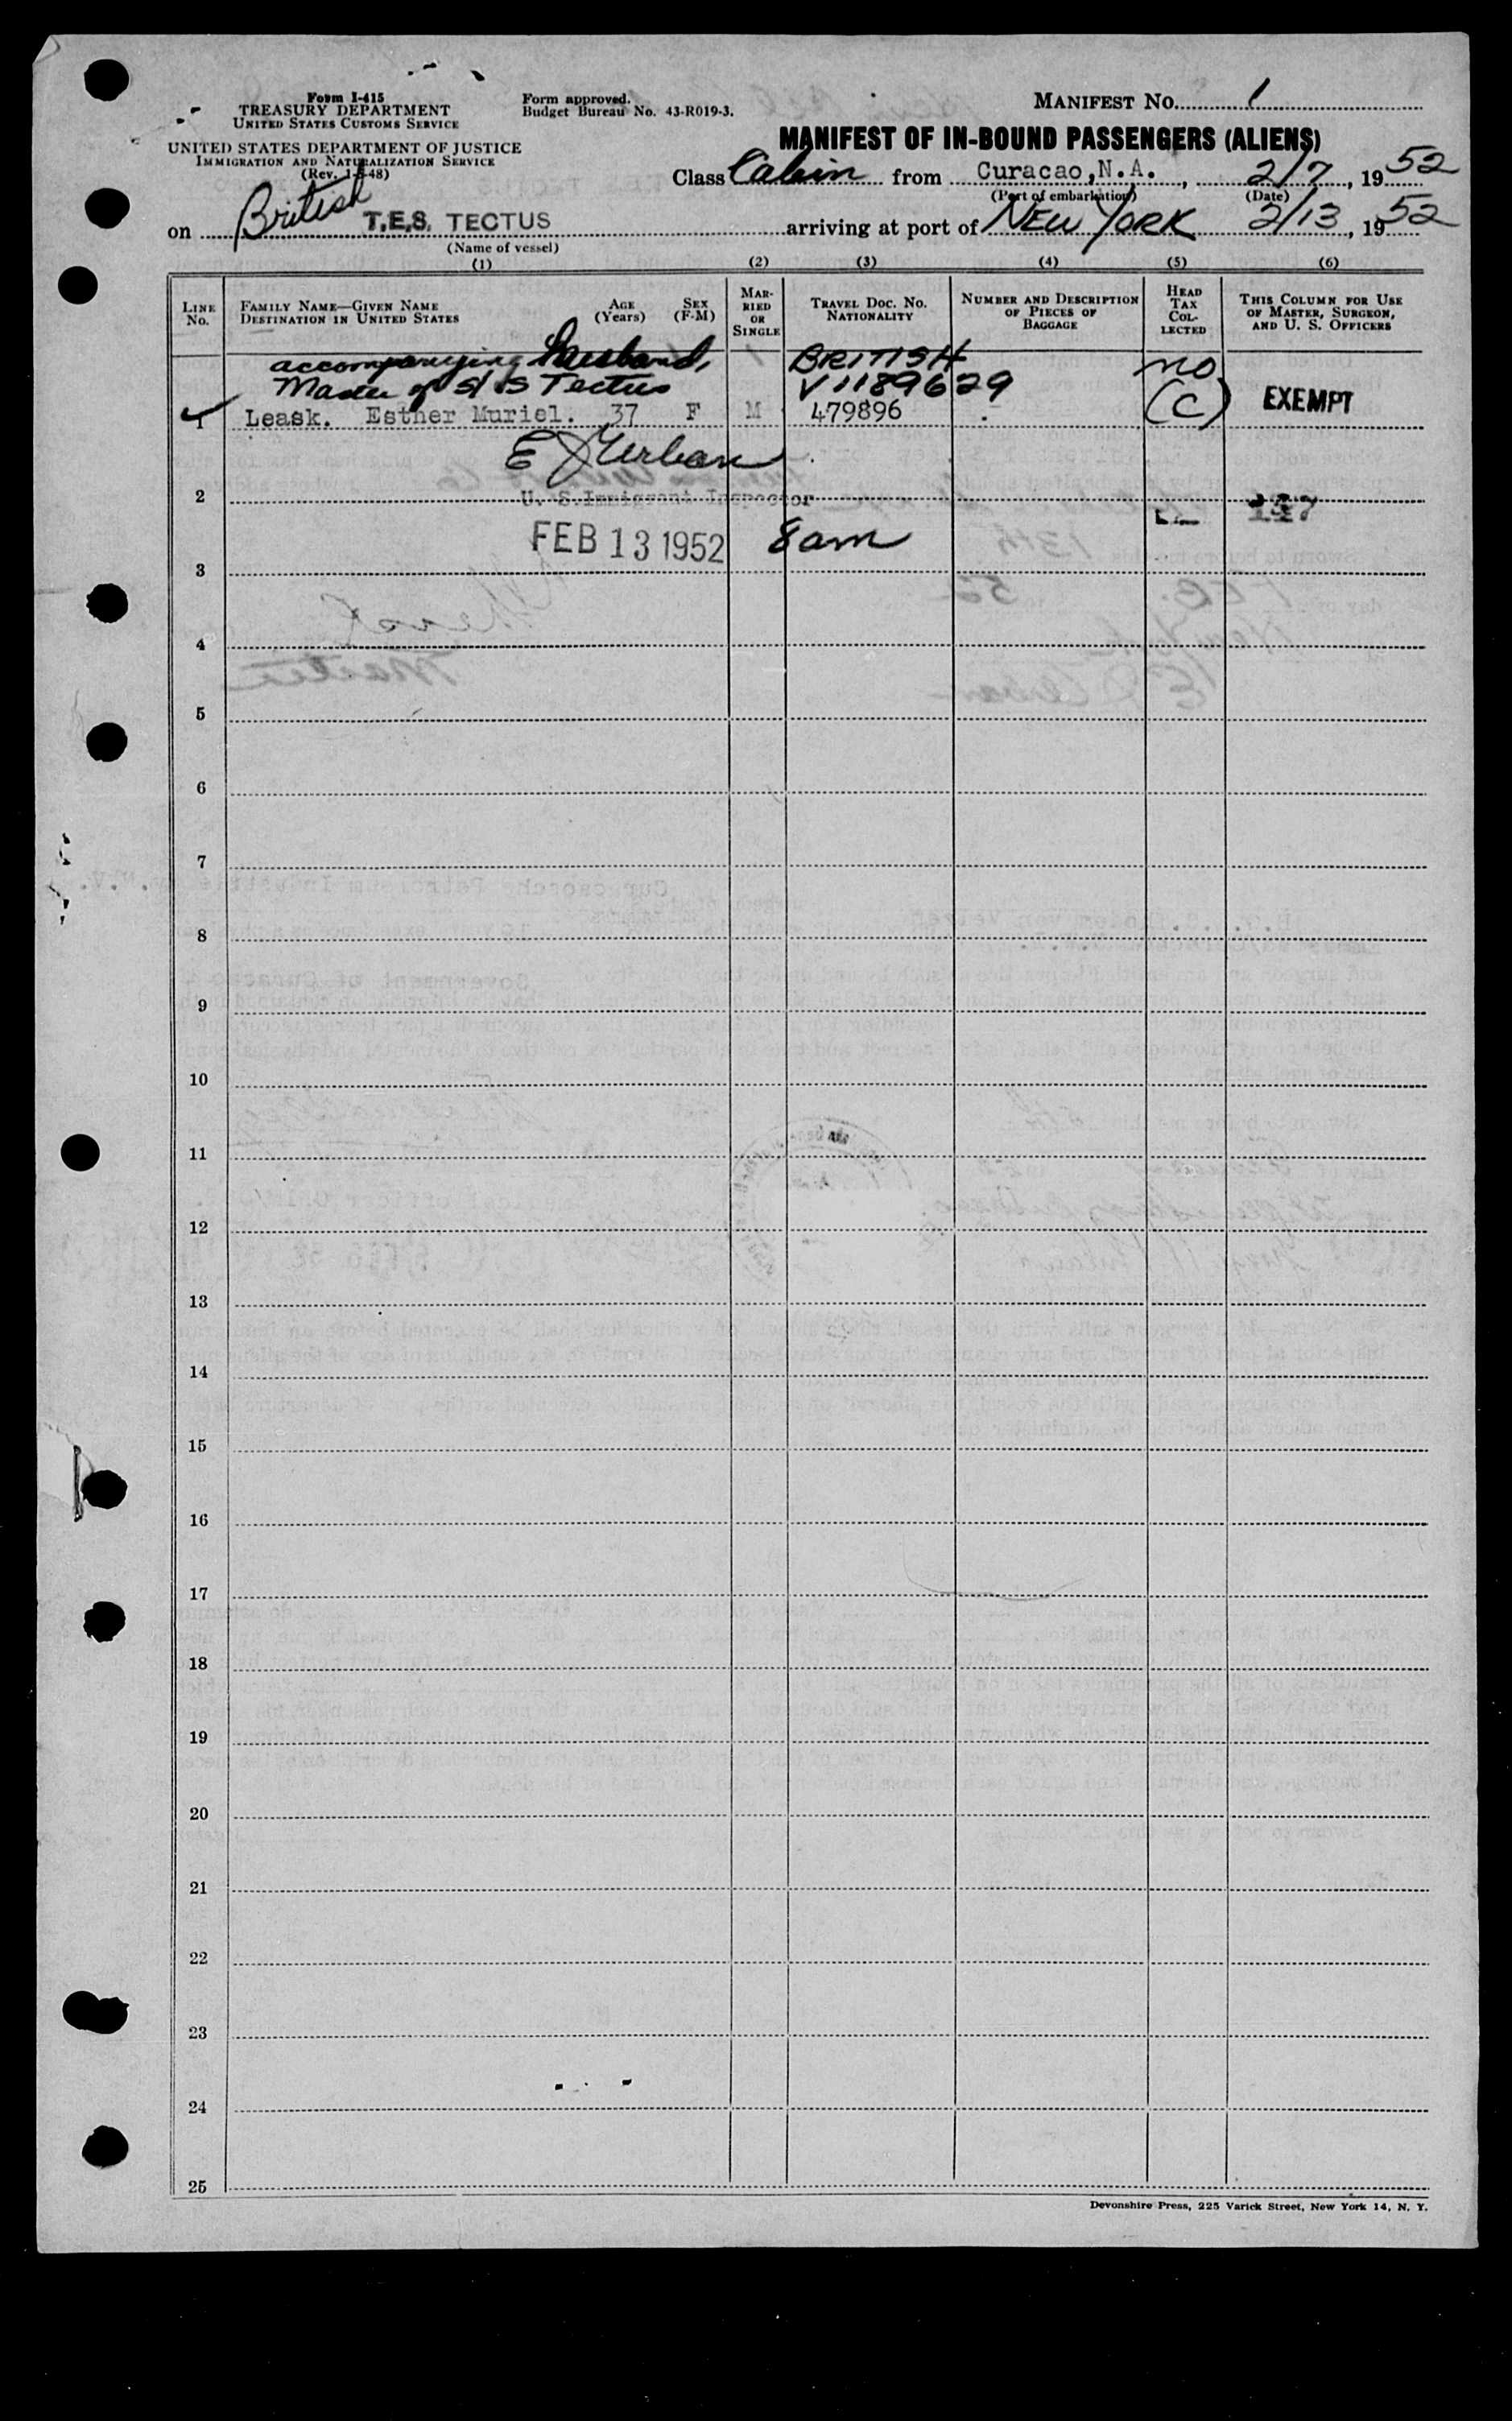 Form I-415
TREASURY DEPARTMENT
UNITED STATES CUSTOMS SERVICE
UNITED STATES DEPARTMENT OF JUSTICE
IMMIGRATION AND NATURALIZATION SERVICE
Form approved.
Budget Bureau No. 43-R019-3.
MANIFEST No. 1
MANIFEST OF IN-BOUND PASSENGERS (ALIENS)
Class Cabin from Curacao, N.A., 2/7, 1952
(Port of embarkation) (Date)
on British T.E.S. TECTUS arriving at port of NEW YORK 2/13, 1952
(Name of vessel)
(1) (2) (3) (4) (5) (6)
LINE No. FAMILY NAME—GIVEN NAME DESTINATION IN UNITED STATES AGE (Years) SEX (F-M) MARRIED OR SINGLE TRAVEL DOC. NO. NATIONALITY NUMBER AND DESCRIPTION OF PIECES OF BAGGAGE HEAD TAX COLLECTED THIS COLUMN FOR USE OF MASTER, SURGEON, AND U. S. OFFICERS
accompanying husband, BRITISH no
Master of S/S Tectus V1189629
1 Leask. Esther Muriel. 37 F M 479896 (C) EXEMPT
E J Urban
2 U. S. Immigrant Inspector
FEB 13 1952 8 am
3
4
5
6
7
8
9
10
11
12
13
14
15
16
17
18
19
20
21
22
23
24
25
Devonshire Press, 225 Varick Street, New York 14, N. Y.